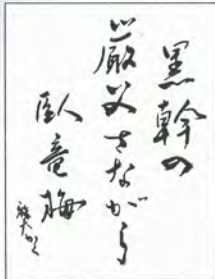 黒幹の
厳父さながら
臥竜梅